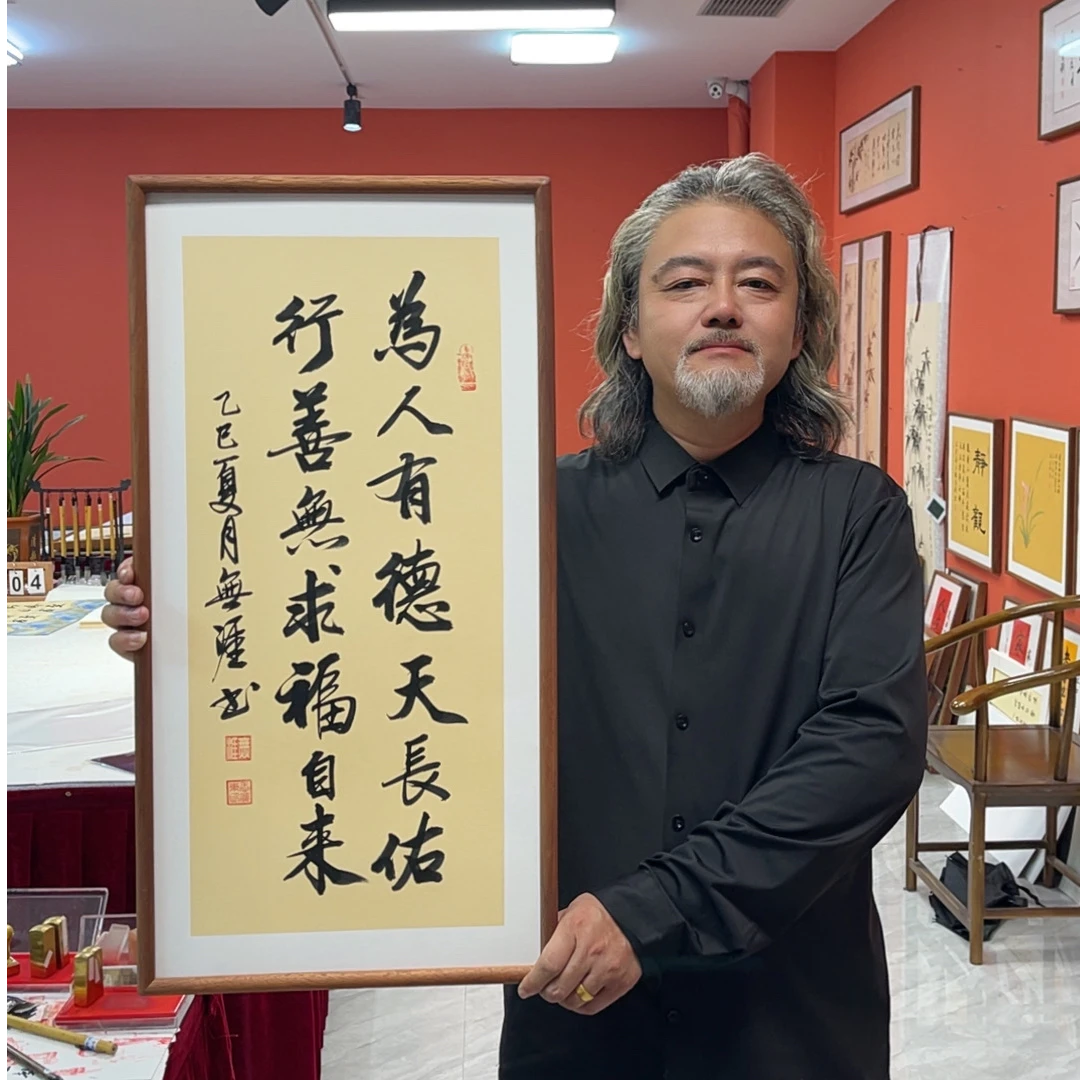 為人有德天長佑
行善無求福自来
乙巳夏月無涯书
04
靜觀